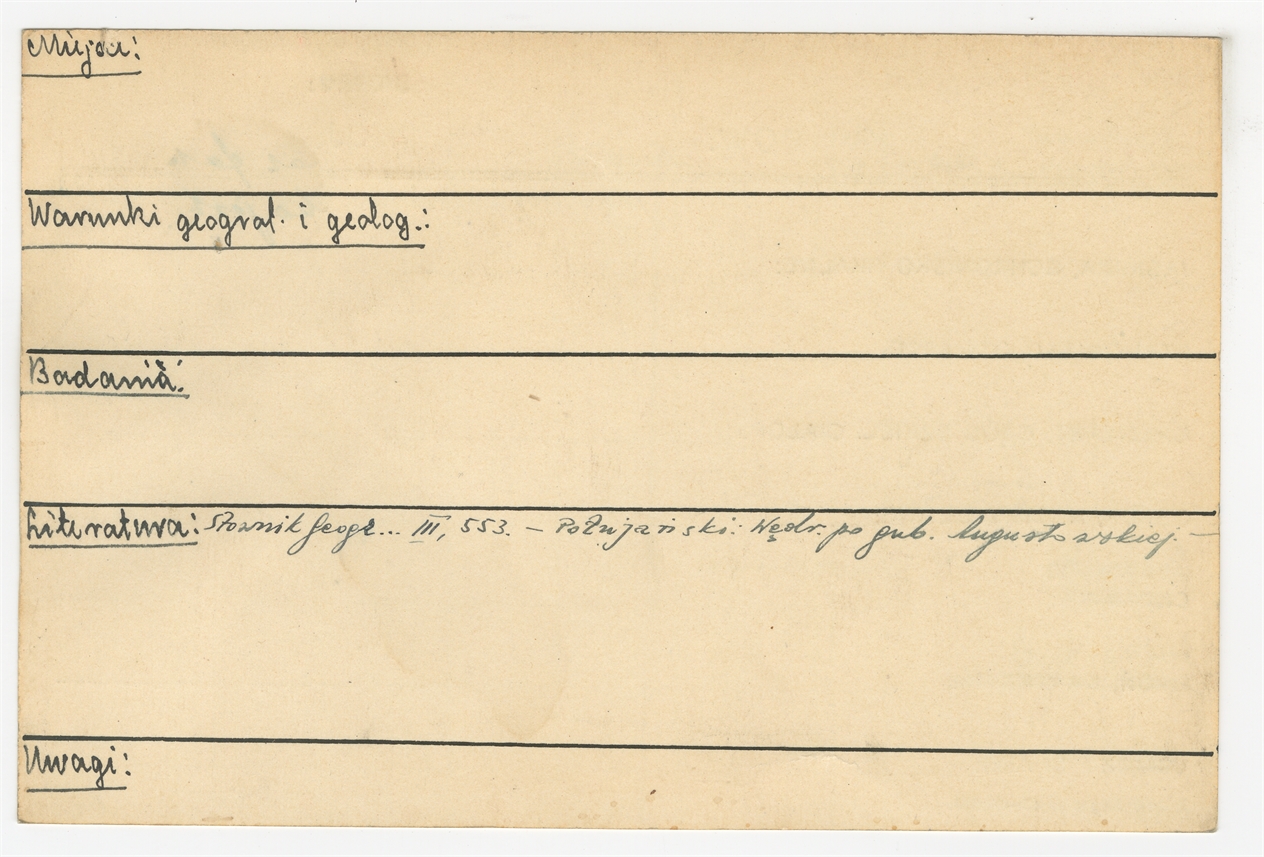 Miejsce:
Warunki geograf. i geolog.:
Badania:
Literatura: Słownik Geogr... III, 553. — Połujański: Wędr. po gub. Augustowskiej. —
Uwagi: